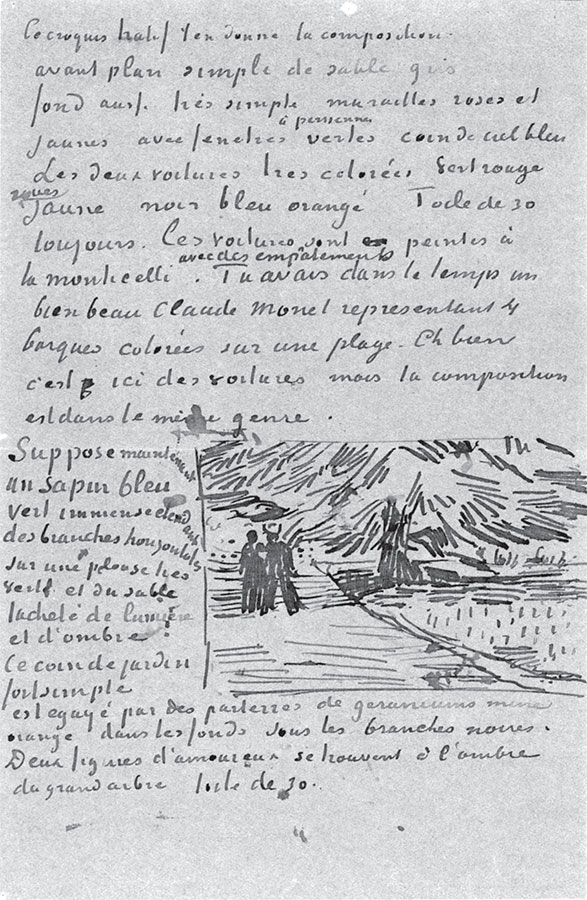 Ce croquis hatif t'en donne la composition
avant plan simple de sable gris
fond aussi très simple murailles roses et
à persiennes
jaunes avec fenetres vertes coin de ciel bleu
Les deux voitures tres colorées Vert rouge
roues
jaune noir bleu orangé Toile de 30
toujours. Les voitures sont peintes à
avec des empâtements
la monticelli. Tu avais dans le temps un
bien beau Claude Monet representant 4
barques colorées sur une plage. Eh bien
c'est ici des voitures mais la composition
est dans le même genre.
Suppose maintenant
un sapin bleu
vert immense etendant
des branches horizontales
sur une pelouse très
verte et du sable
tacheté de lumière
et d'ombre
Ce coin de jardin
fort simple
est egayé par des parterres de geraniums mine
orange dans les fonds sous les branches noires.
Deux figures d'amoureux se trouvent à l'ombre
du grand arbre toile de 30.